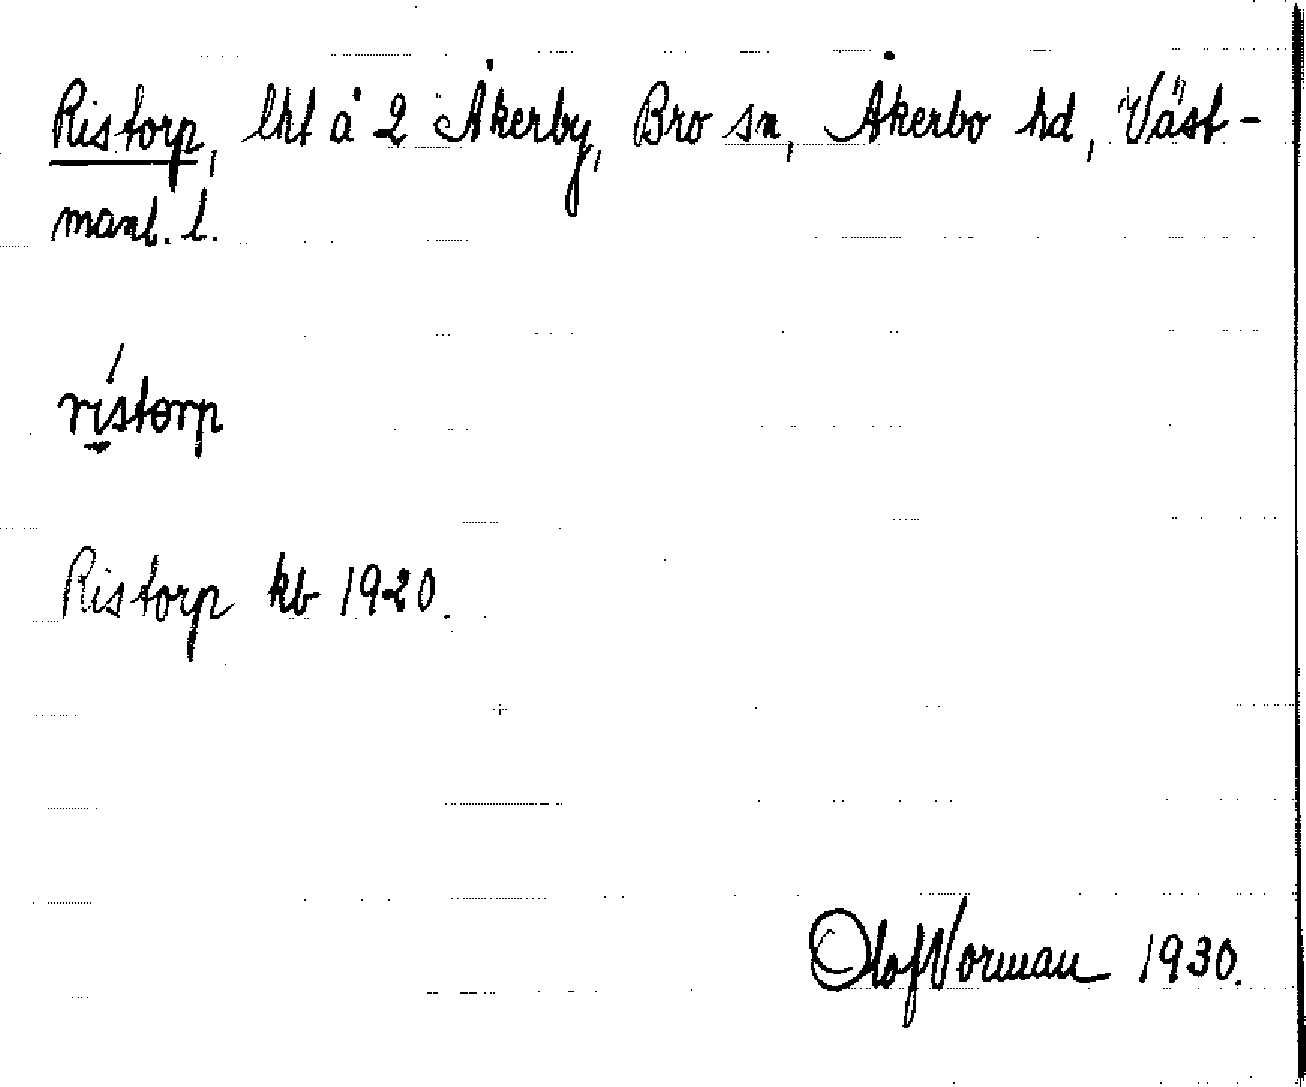 Ristorp, lht å 2 Åkerby, Bro sn, Åkerbo hd, Väst-
manl. l.
ristorp
Ristorp kb 1920.
Olof Vorman 1930.